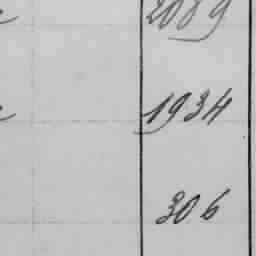 2089
1934
306